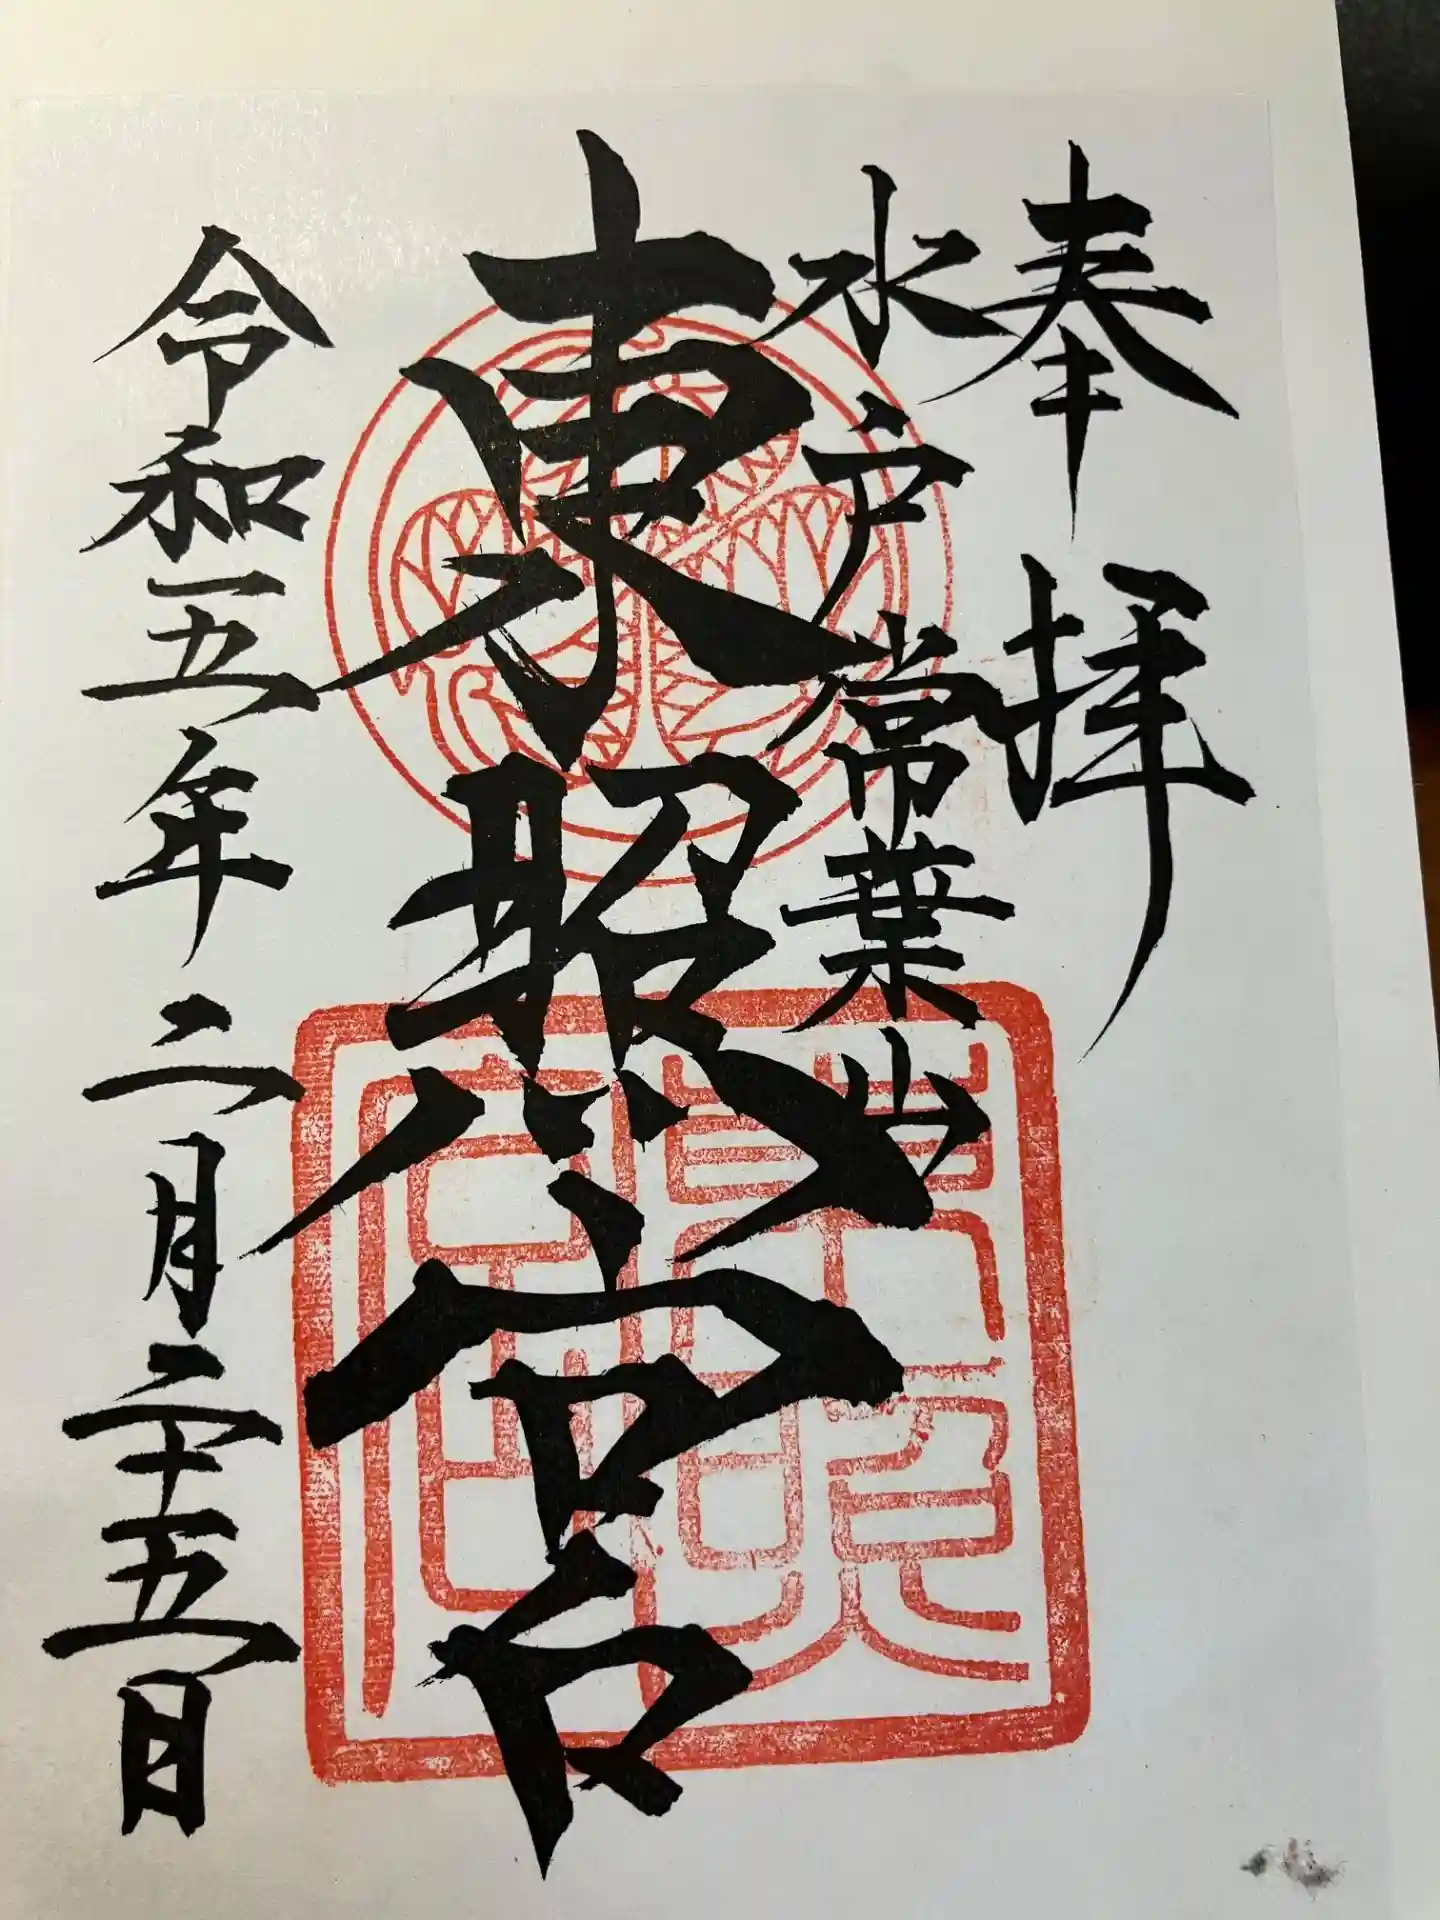 奉拝
水戸常葉山
東照宮
令和五年二月二十五日